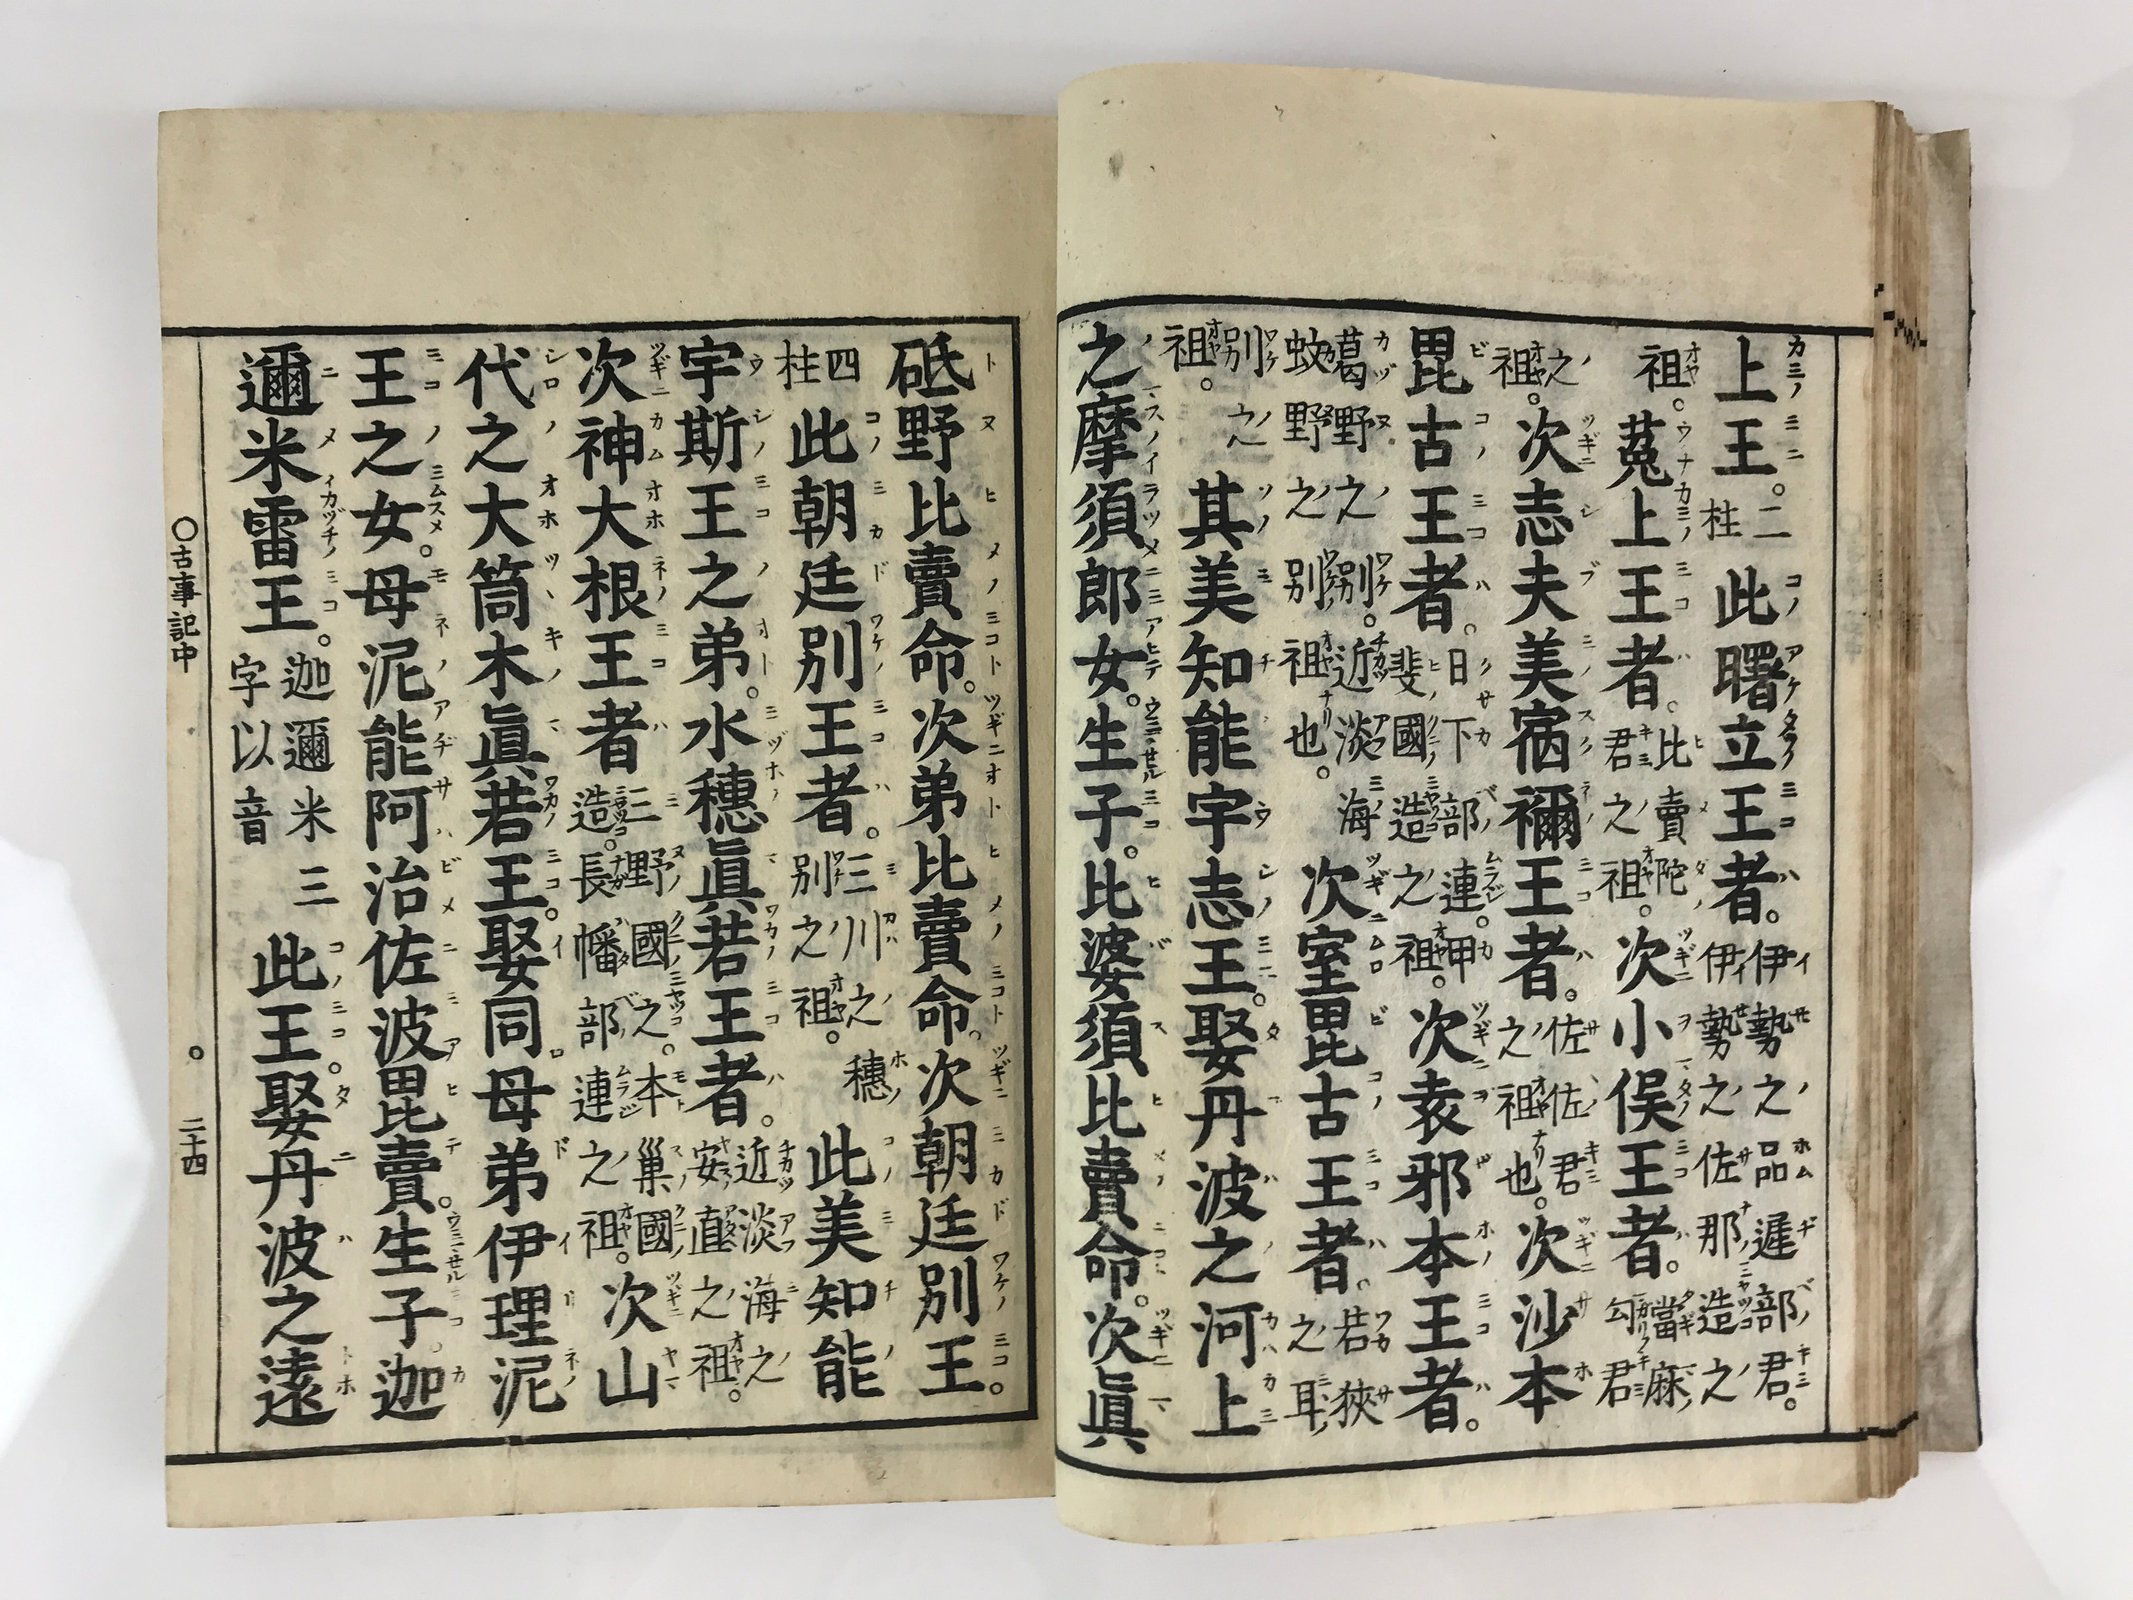 上王。二柱此曙立王者。伊勢之品遲部君。伊勢之佐那造之
祖。菟上王者。比賣陀君之祖。次小俣王者。當麻勾君
之祖。次志夫美宿禰王者。佐佐君之祖也。次沙本
毘古王者。日下部連。甲斐國造之祖。次袁邪本王者。
葛野之別。近淡海蚊野之別祖也。次室毘古王者。若狹之耳
別之祖。其美知能宇志王。娶丹波之河上
之摩須郎女。生子。比婆須比賣命。次眞
砥野比賣命。次弟比賣命。次朝廷別王。
四柱此朝廷別王者。三川之穗別之祖。此美知能
宇斯王之弟。水穗眞若王者。近淡海之安直之祖。
次神大根王者。三野國之。本巢國造。長幡部連之祖。次山
代之大筒木眞若王。娶同母弟伊理泥
王之女。母泥能阿治佐波毘賣。生子。迦
邇米雷王。迦邇米三字以音此王。娶丹波之遠
〇古事記中 〇 二十四